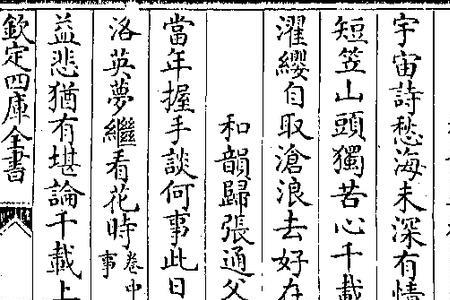 宇宙詩愁海未深有情
短笠山頭獨苦心千載
濯纓自取滄浪去好在
和韻歸張通父
當年握手談何事此日
洛英夢繼看花時卷中事
益悲猶有堪論千載上
欽定四庫全書